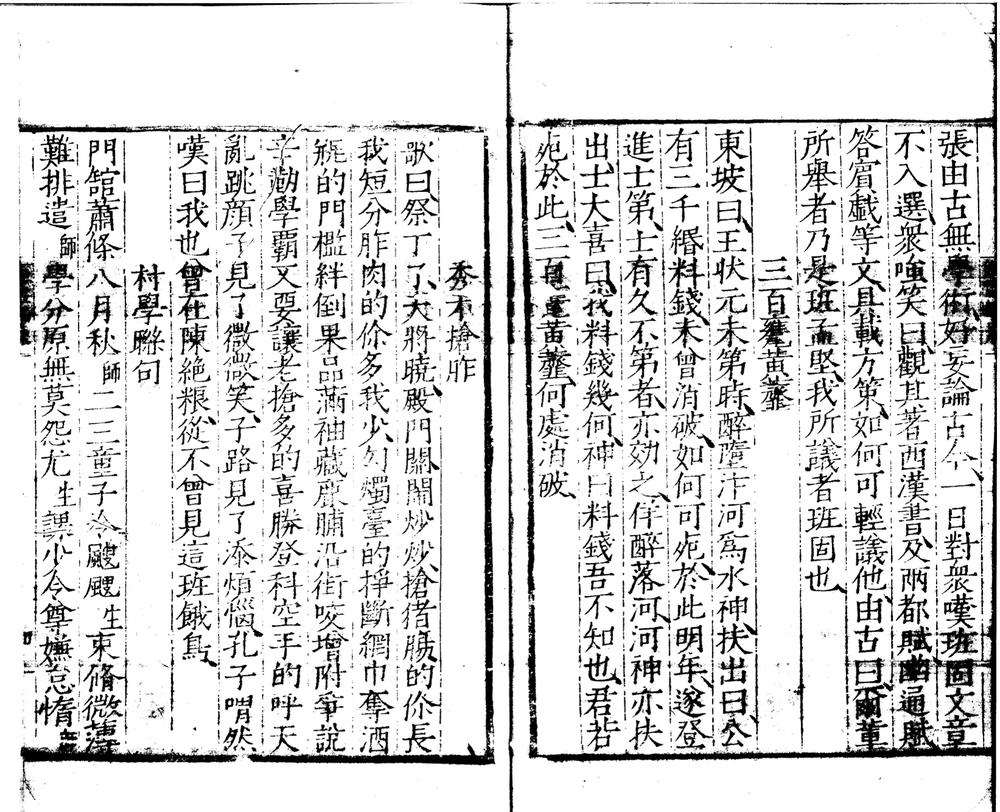 張由古無學術好妄論古今一日對衆嘆班固文章
不入選衆嗤笑曰觀其著西漢書及兩都賦幽通賦
答賓戲等文具載方策如何可輕議他由古曰爾輩
所舉者乃是班孟堅我所議者班固也
三百甕黄虀
東坡曰王状元未第時醉墮汴河爲水神扶出曰公
有三千緡料錢未曾消破如何可死於此明年遂登
進士第士有久不第者亦効之佯醉落河河神亦扶
出士大喜曰我料錢幾何神曰料錢吾不知也君若
死於此三百甕黄虀何處消破
秀才搶胙
歌曰祭丁了天將曉殿門關鬧炒炒搶猪膓的你長
我短分胙肉的你多我少勾燭臺的掙斷網巾奪酒
瓶的門檻絆倒果品滿袖藏鹿脯沿街咬增附爭說
辛勤學霸又要讓老搶多的喜勝登科空手的呼天
亂跳顔子見了微微笑子路見了添煩惱孔子喟然
嘆曰我也曾在陳絶粮從不曾見這班餓鳥
村學聮句
門舘蕭條八月秋師二三童子冷颼颼生東脩微薄
難排遣師學分原無莫怨尤生課少今尊嫌怠惰